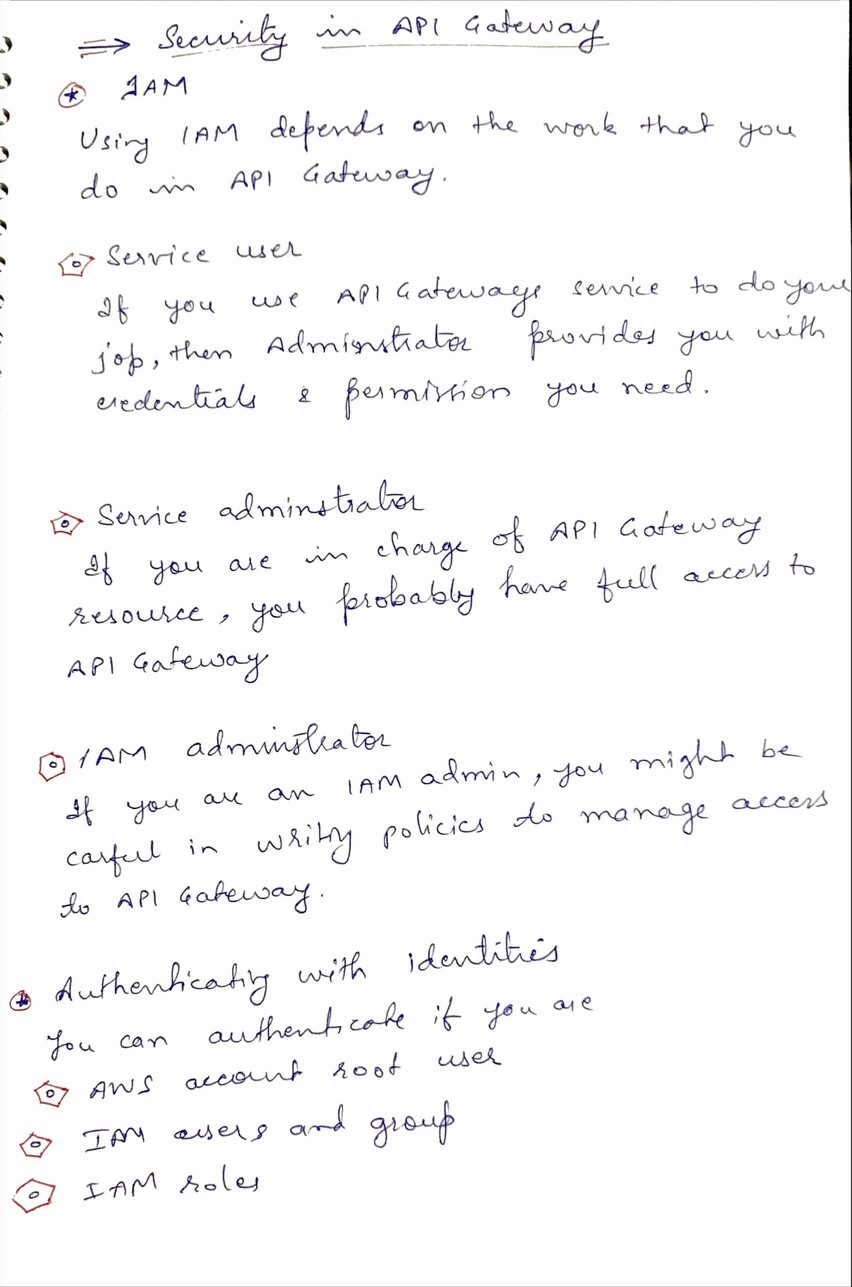 ⇒ Security in API Gateway
IAM
Using IAM depends on the work that you
do in API Gateway.
Service user
If you use API Gateways service to do your
job, then Adminstrator provides you with
credentials & permission you need.
Service adminstrator
If you are in charge of API Gateway
resource, you probably have full access to
API Gateway
IAM adminstrator
If you are an IAM admin, you might be
carful in writing policies to manage access
to API Gateway.
Authenticating with identities
You can authenticate if you are
AWS account root user
IAM users and group
IAM roles